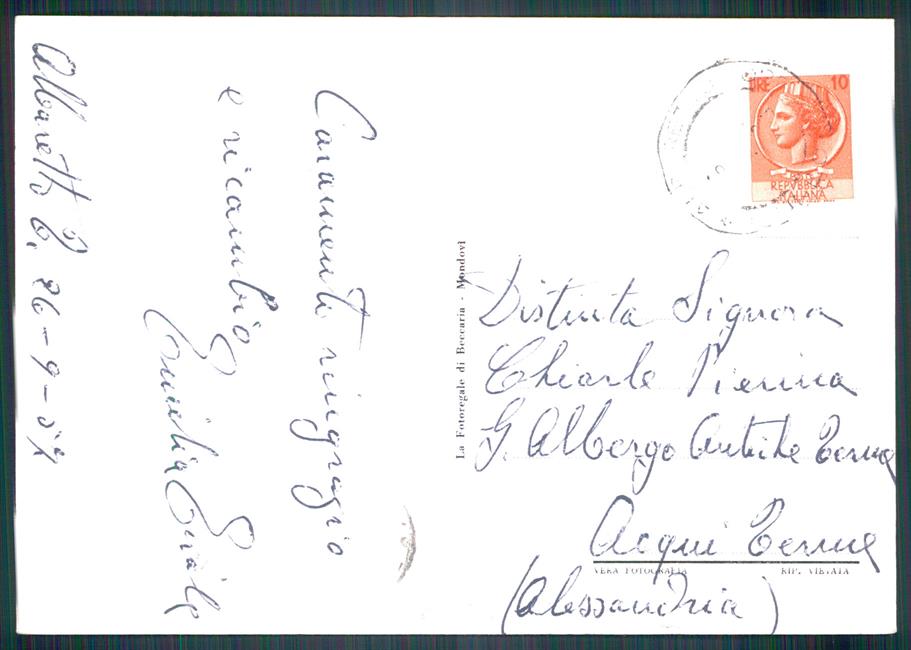 Albaretto T. 26-9-57
Caramente ringrazio
e ricambio
Emilia
LIRE 10
REPVBBLICA
ITALIANA
La Fotoregale di Beccaria - Mondovì
Distinta Signora
Chiarle Pierina
G. Albergo Antiche Terme
Acqui Terme
VERA FOTOGRAFIA RIP. VIETATA
(Alessandria)